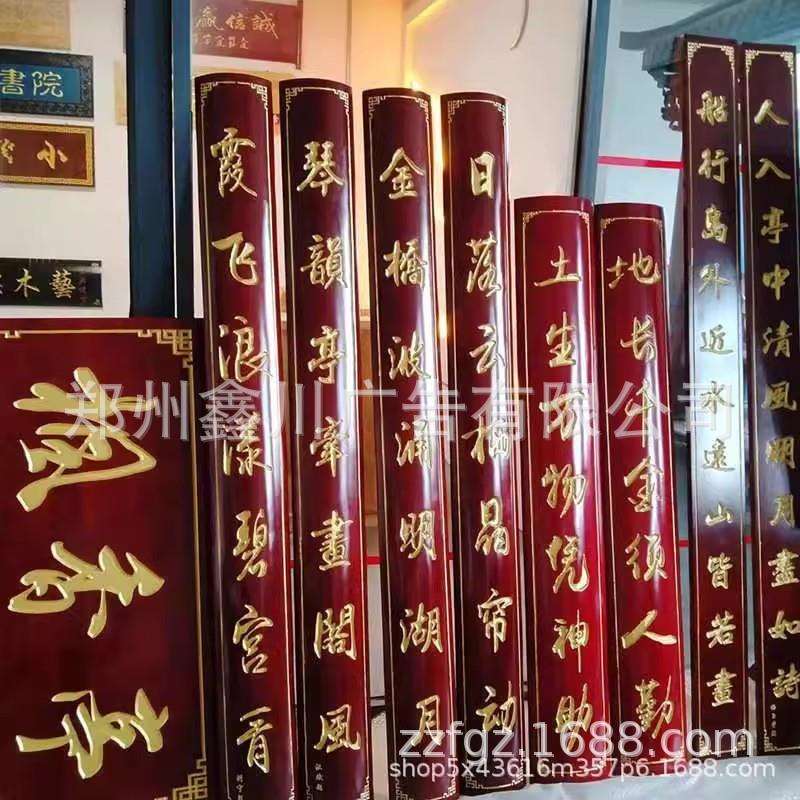 誠信贏
書院
小
木藝
楓香亭
霞飞浪漾碧宫音
琴韻亭牵畫閣風
金橋波涌明湖月
日落云摇晶帘動
土生万物凭神助
地长千金须人勤
船行岛外近水遠山皆若畫
人入亭中清風明月盡如詩
郑州鑫川广告有限公司
zzfgz.1688.com
shop5x43616m357p6.1688.com